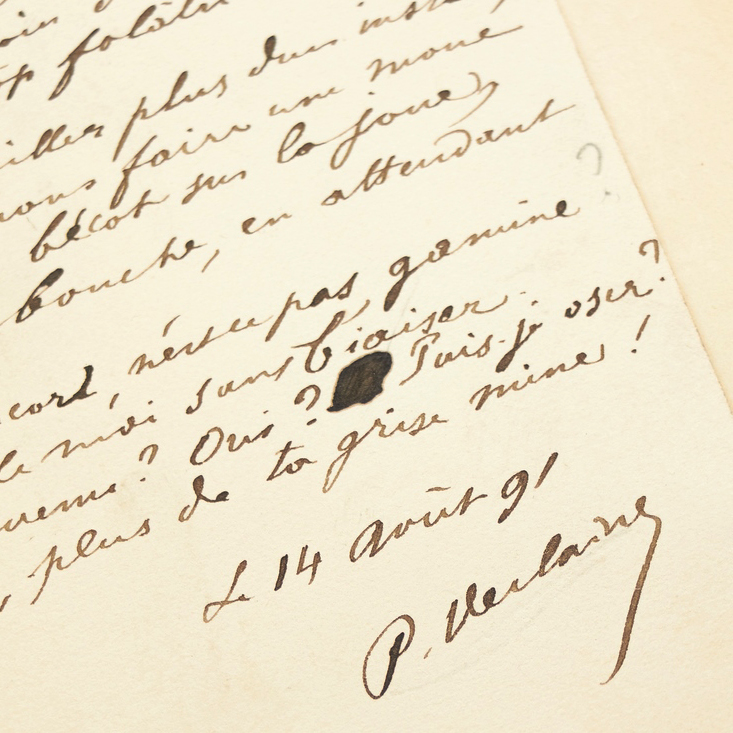 folâtr
plus d'un inst
faire une moue
bécot sur la joue,
bouche, en attendant
cord, n'est ce pas gamine ?
le moi sans biaiser.
? Oui ? Puis-je oser ?
, plus de ta grise mine !
Le 14 août 91
P. Verlaine